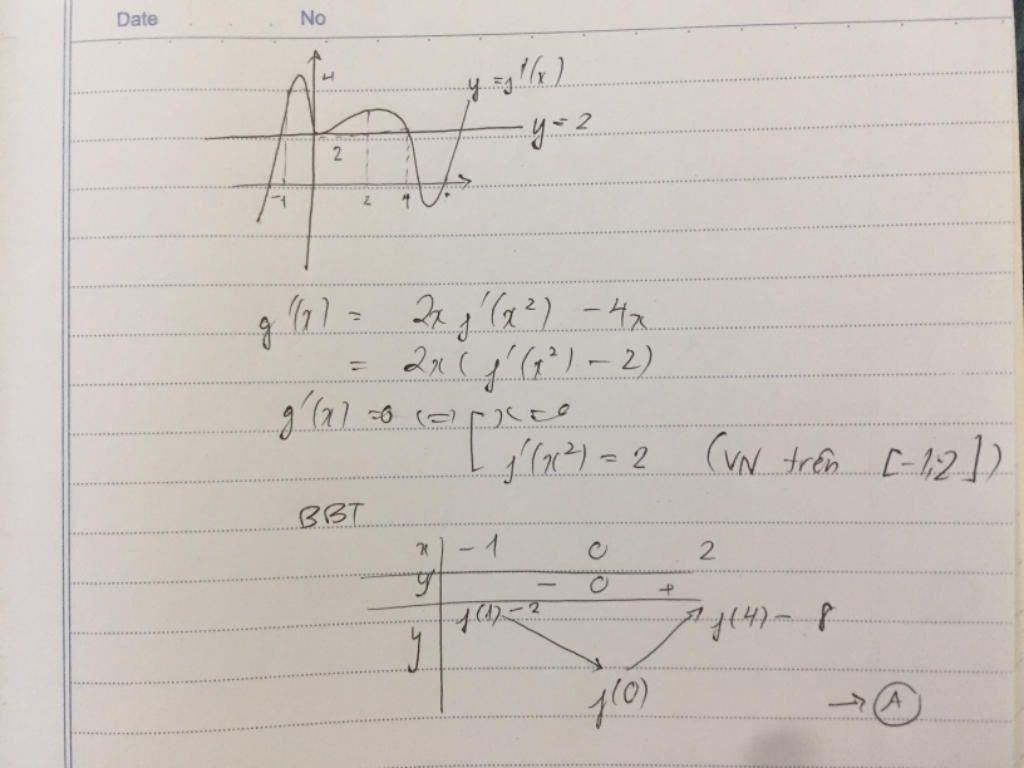 Date No
4
y = f'(x)
y = 2
2
-1 2 4
g'(x) = 2x f'(x²) - 4x
= 2x ( f'(x²) - 2)
g'(x) = 0 <=> [ x = 0
f'(x²) = 2 (VN trên [-1;2])
BBT
x -1 0 2
y' - 0 +
y f(1) - 2 f(4) - 8
f(0)
→ A